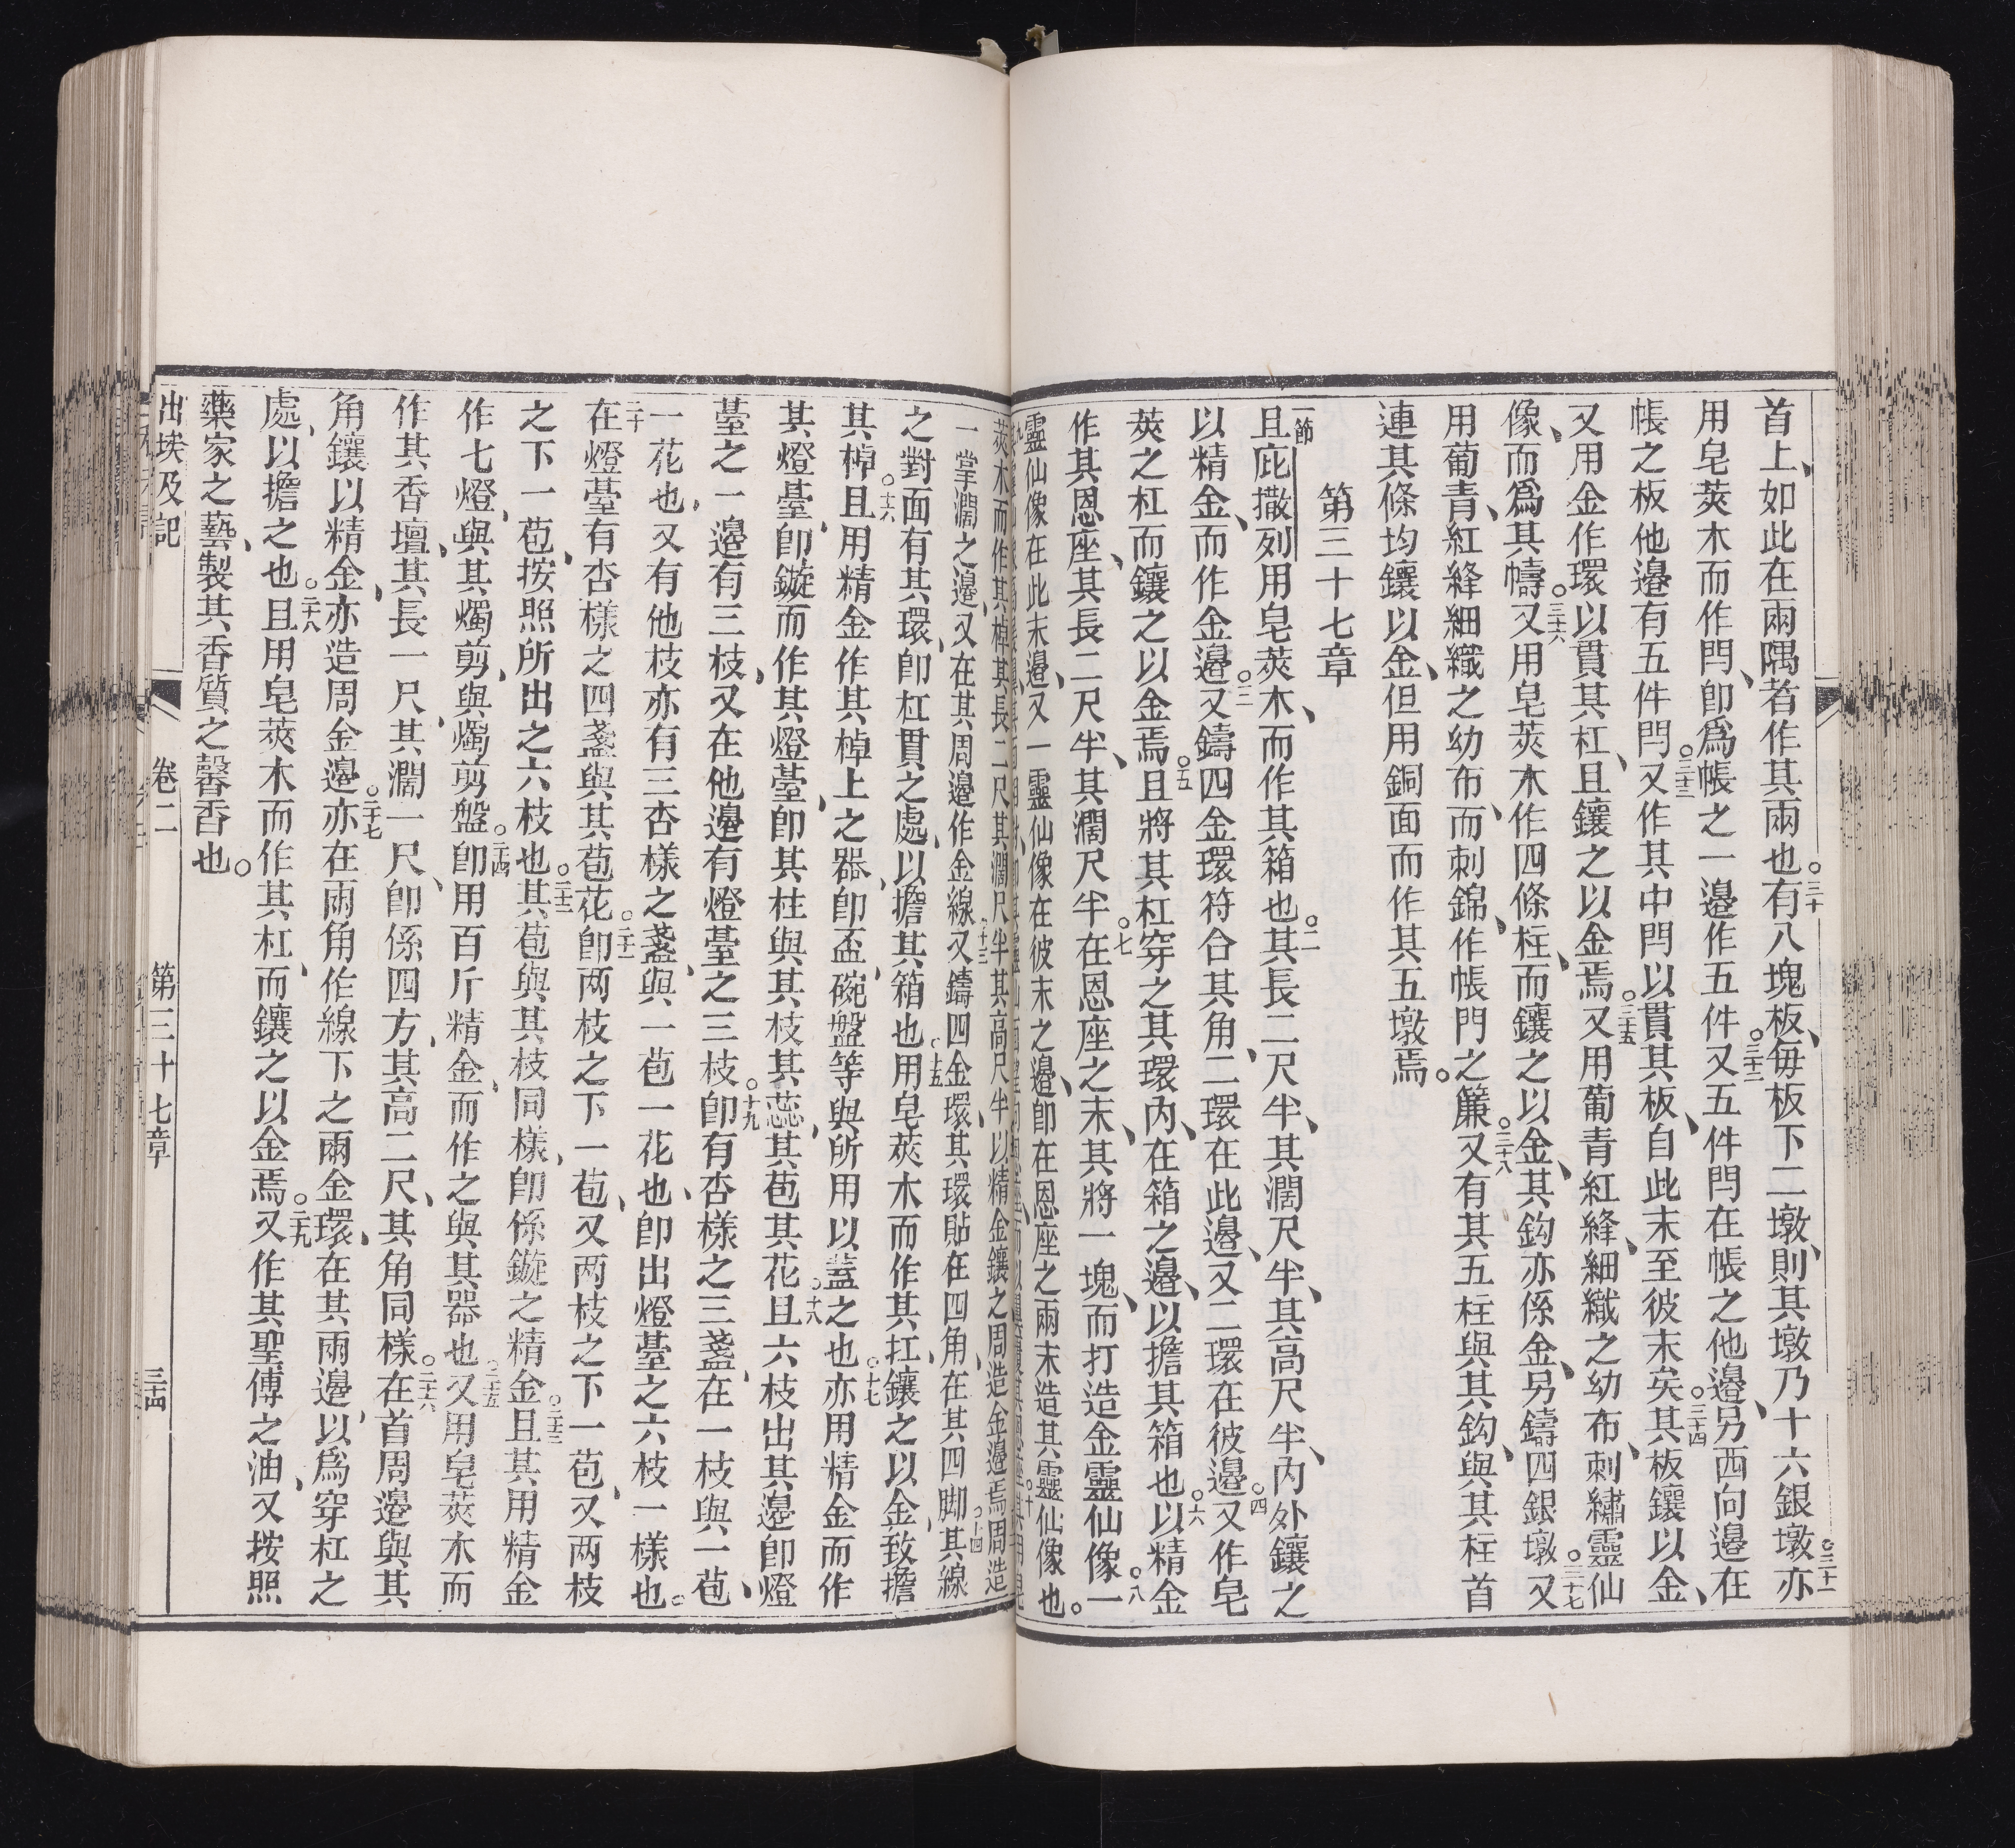 首上、如此在兩隅者作其兩也。三十有八塊板、每板下二墩、則其墩乃十六銀墩。三十一亦
用皂莢木而作閂、卽爲帳之一邊作五件。三十二又五件閂在帳之他邊、另西向邊在
帳之板他邊有五件閂。三十三又作其中閂以貫其板、自此末至彼末矣。三十四其板鑲以金、
又用金作環以貫其杠、且鑲之以金焉。三十五又用葡青紅絳、細織之幼布、刺繡靈仙
像、而爲其幬。三十六又用皂莢木作四條柱、而鑲之以金、其鈎亦係金、另鑄四銀墩。三十七又
用葡青、紅絳細織之幼布、而刺錦、作帳門之簾。三十八又有其五柱與其鈎、與其柱首
連其條均鑲以金、但用銅面而作其五墩焉。
第三十七章
一節且庇撒列用皂莢木、而作其箱也。二其長二尺半、其濶尺半、其高尺半、內外鑲之
以精金、而作金邊。三又鑄四金環符合其角、二環在此邊、又二環在彼邊。四又作皂
莢之杠而鑲之以金焉。五且將其杠穿之其環內、在箱之邊、以擔其箱也。六以精金
作其恩座、其長二尺半、其濶尺半。七在恩座之末、其將一塊、而打造金靈仙像。八一
靈仙像在此末邊、又一靈仙像在彼末之邊、卽在恩座之兩末造其靈仙像也。
莢木而作其棹其長二尺其濶尺半其高尺半以精金鑲之周造金邊焉。周造
一掌濶之邊、又在其周邊作金線。十三又鑄四金環、其環貼在四角、在其四脚。十四其線
之對面有其環、卽杠貫之處、以擔其箱也。十五用皂莢木而作其扛、鑲之以金、致擔
其棹。十六且用精金作其棹上之器、卽盃、碗盤等與所用以蓋之也。十七亦用精金而作
其燈臺、卽鏇而作其燈臺、卽其柱與其枝其蕊、其苞其花。十八且六枝出其邊卽燈
臺之一邊有三枝、又在他邊有燈臺之三枝。十九卽有杏樣之三盞、在一枝與一苞、
一花也、又有他枝亦有三杏樣之盞、與一苞一花也、卽出燈臺之六枝一樣也。
二十在燈臺有杏樣之四盞與其苞花。二十一卽两枝之下一苞、又两枝之下一苞、又两枝
之下一苞、按照所出之六枝也。二十二其苞與其枝同樣、卽係鏇之精金。二十三且其用精金
作七燈、與其燭剪、與燭剪盤。二十四卽用百斤精金、而作之與其器也。二十五又用皂莢木而
作其香壇、其長一尺、其濶一尺、卽係四方、其高二尺、其角同樣。二十六在首周邊與其
角鑲以精金、亦造周金邊。二十七亦在兩角作線下之兩金環、在其兩邊、以爲穿杠之
處、以擔之也。二十八且用皂莢木而作其杠、而鑲之以金焉。二十九又作其聖傅之油、又按照
藥家之藝、製其香質之馨香也。
出埃及記
卷二
第三十七章
三十四